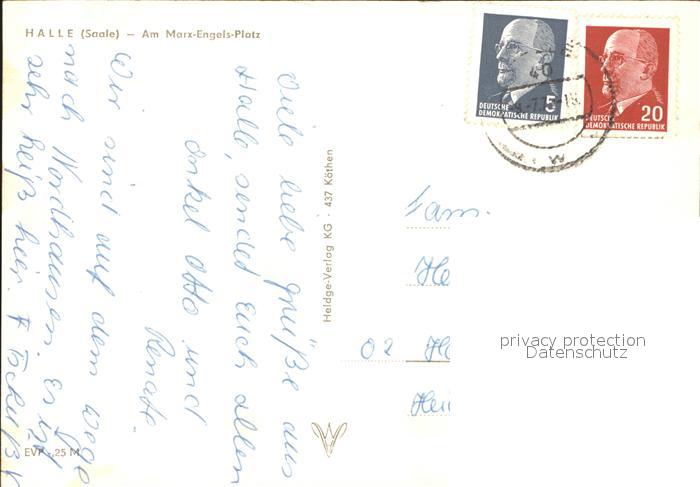 HALLE (Saale) – Am Marx-Engels-Platz
Viele liebe Grüße aus
Halle, sendet Euch allen
Onkel Otto und
Renate.
Wir sind auf dem Wege
nach Nordhausen. Es ist
sehr heiß hier.
EVP -,25 M
Heldge-Verlag KG · 437 Köthen
DEUTSCHE
DEMOKRATISCHE REPUBLIK
5
DEUTSCHE
DEMOKRATISCHE REPUBLIK
20
Fam.
He
02 H
Hei
privacy protection
Datenschutz